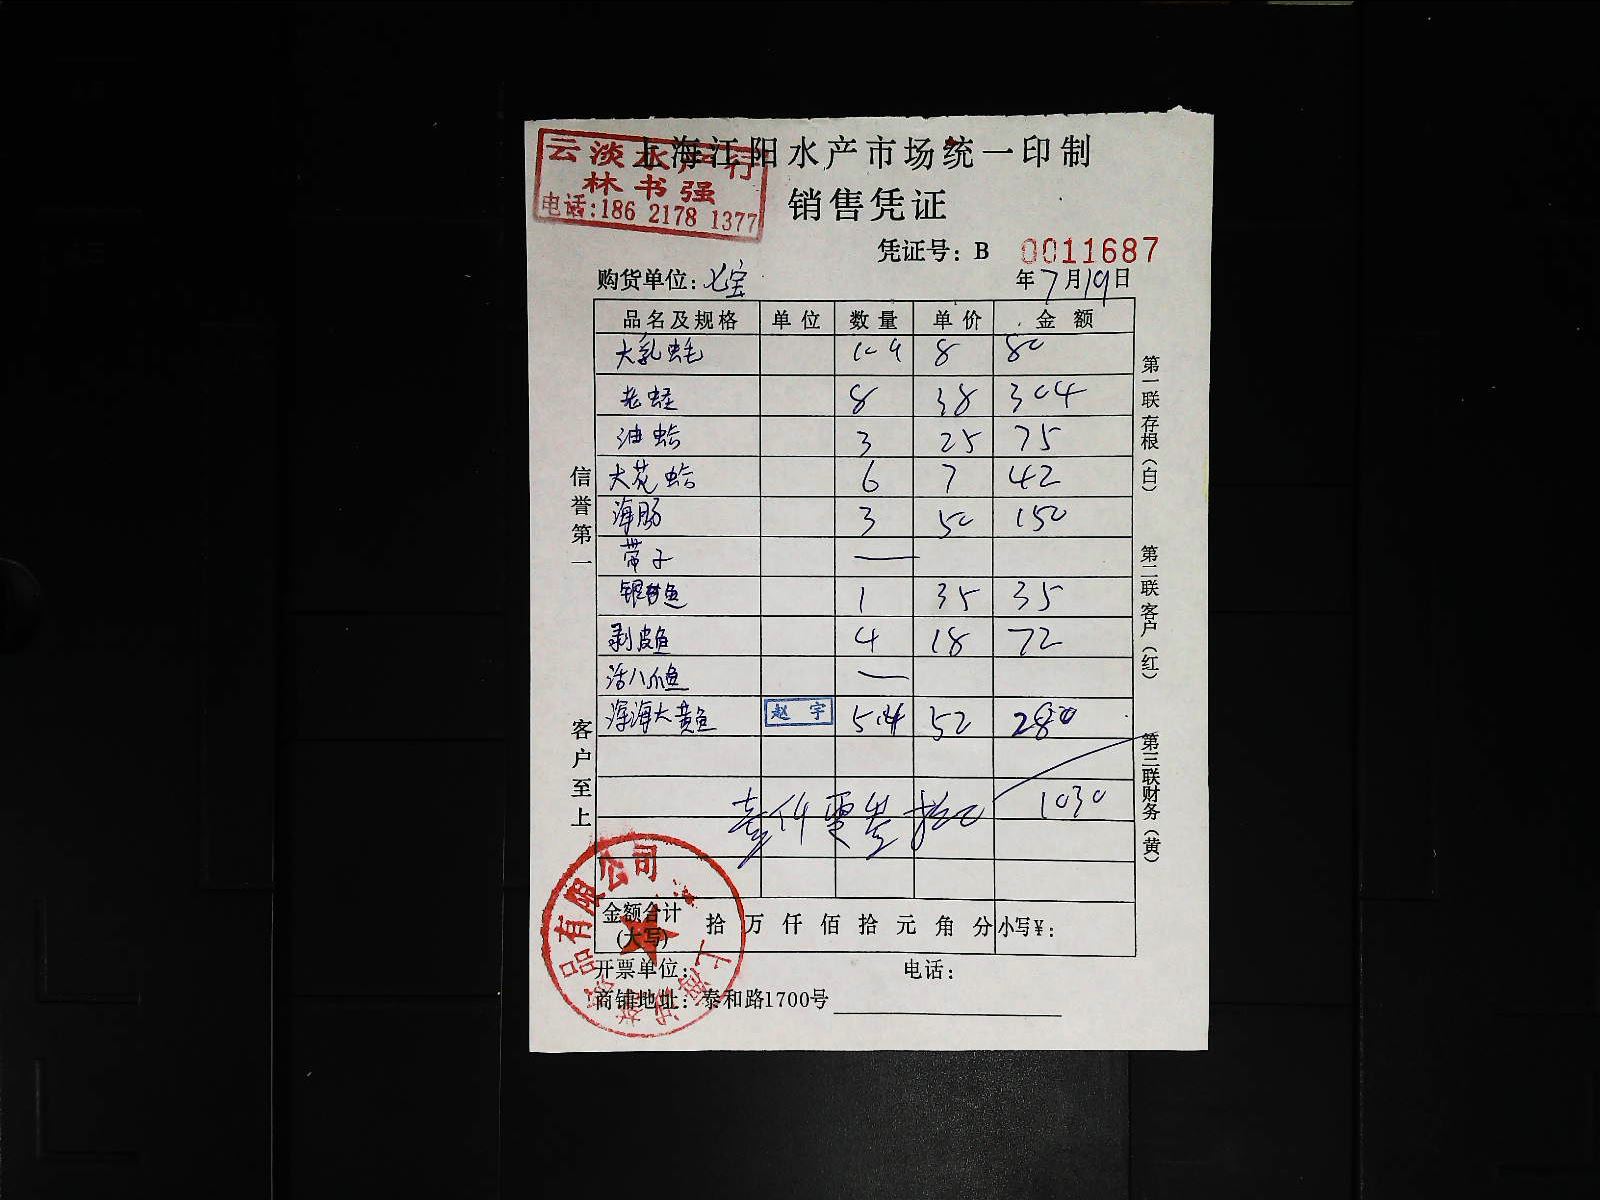 上海江阳水产市场统一印制
云淡水产行
林书强
电话:186 2178 1377
销售凭证
凭证号: B 0011687
购货单位: 七宝 年7月19日
品名及规格 单位 数量 单价 金额
大乳蚝 10个 8 80
老蛏 8 38 304
油蛤 3 25 75
大花蛤 6 7 42
海肠 3 50 150
带子 —
银鲳鱼 1 35 35
剥皮鱼 4 18 72
活八爪鱼 —
深海大黄鱼 赵宇 5.4 52 280
壹仟零叁拾元 1030
金额合计(大写) 拾 万 仟 佰 拾 元 角 分 小写¥:
开票单位: 电话:
商铺地址: 泰和路1700号
信誉第一
客户至上
第一联存根(白)
第二联客户(红)
第三联财务(黄)
品有限公司
上海